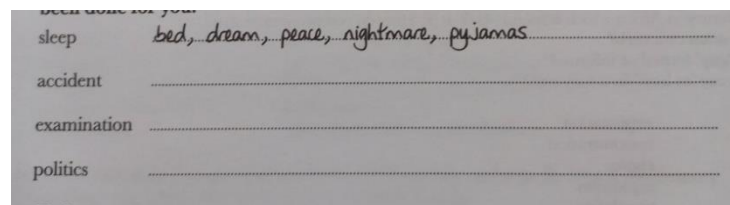 been done for you.
sleep bed, dream, peace, nightmare, pyjamas
accident
examination
politics